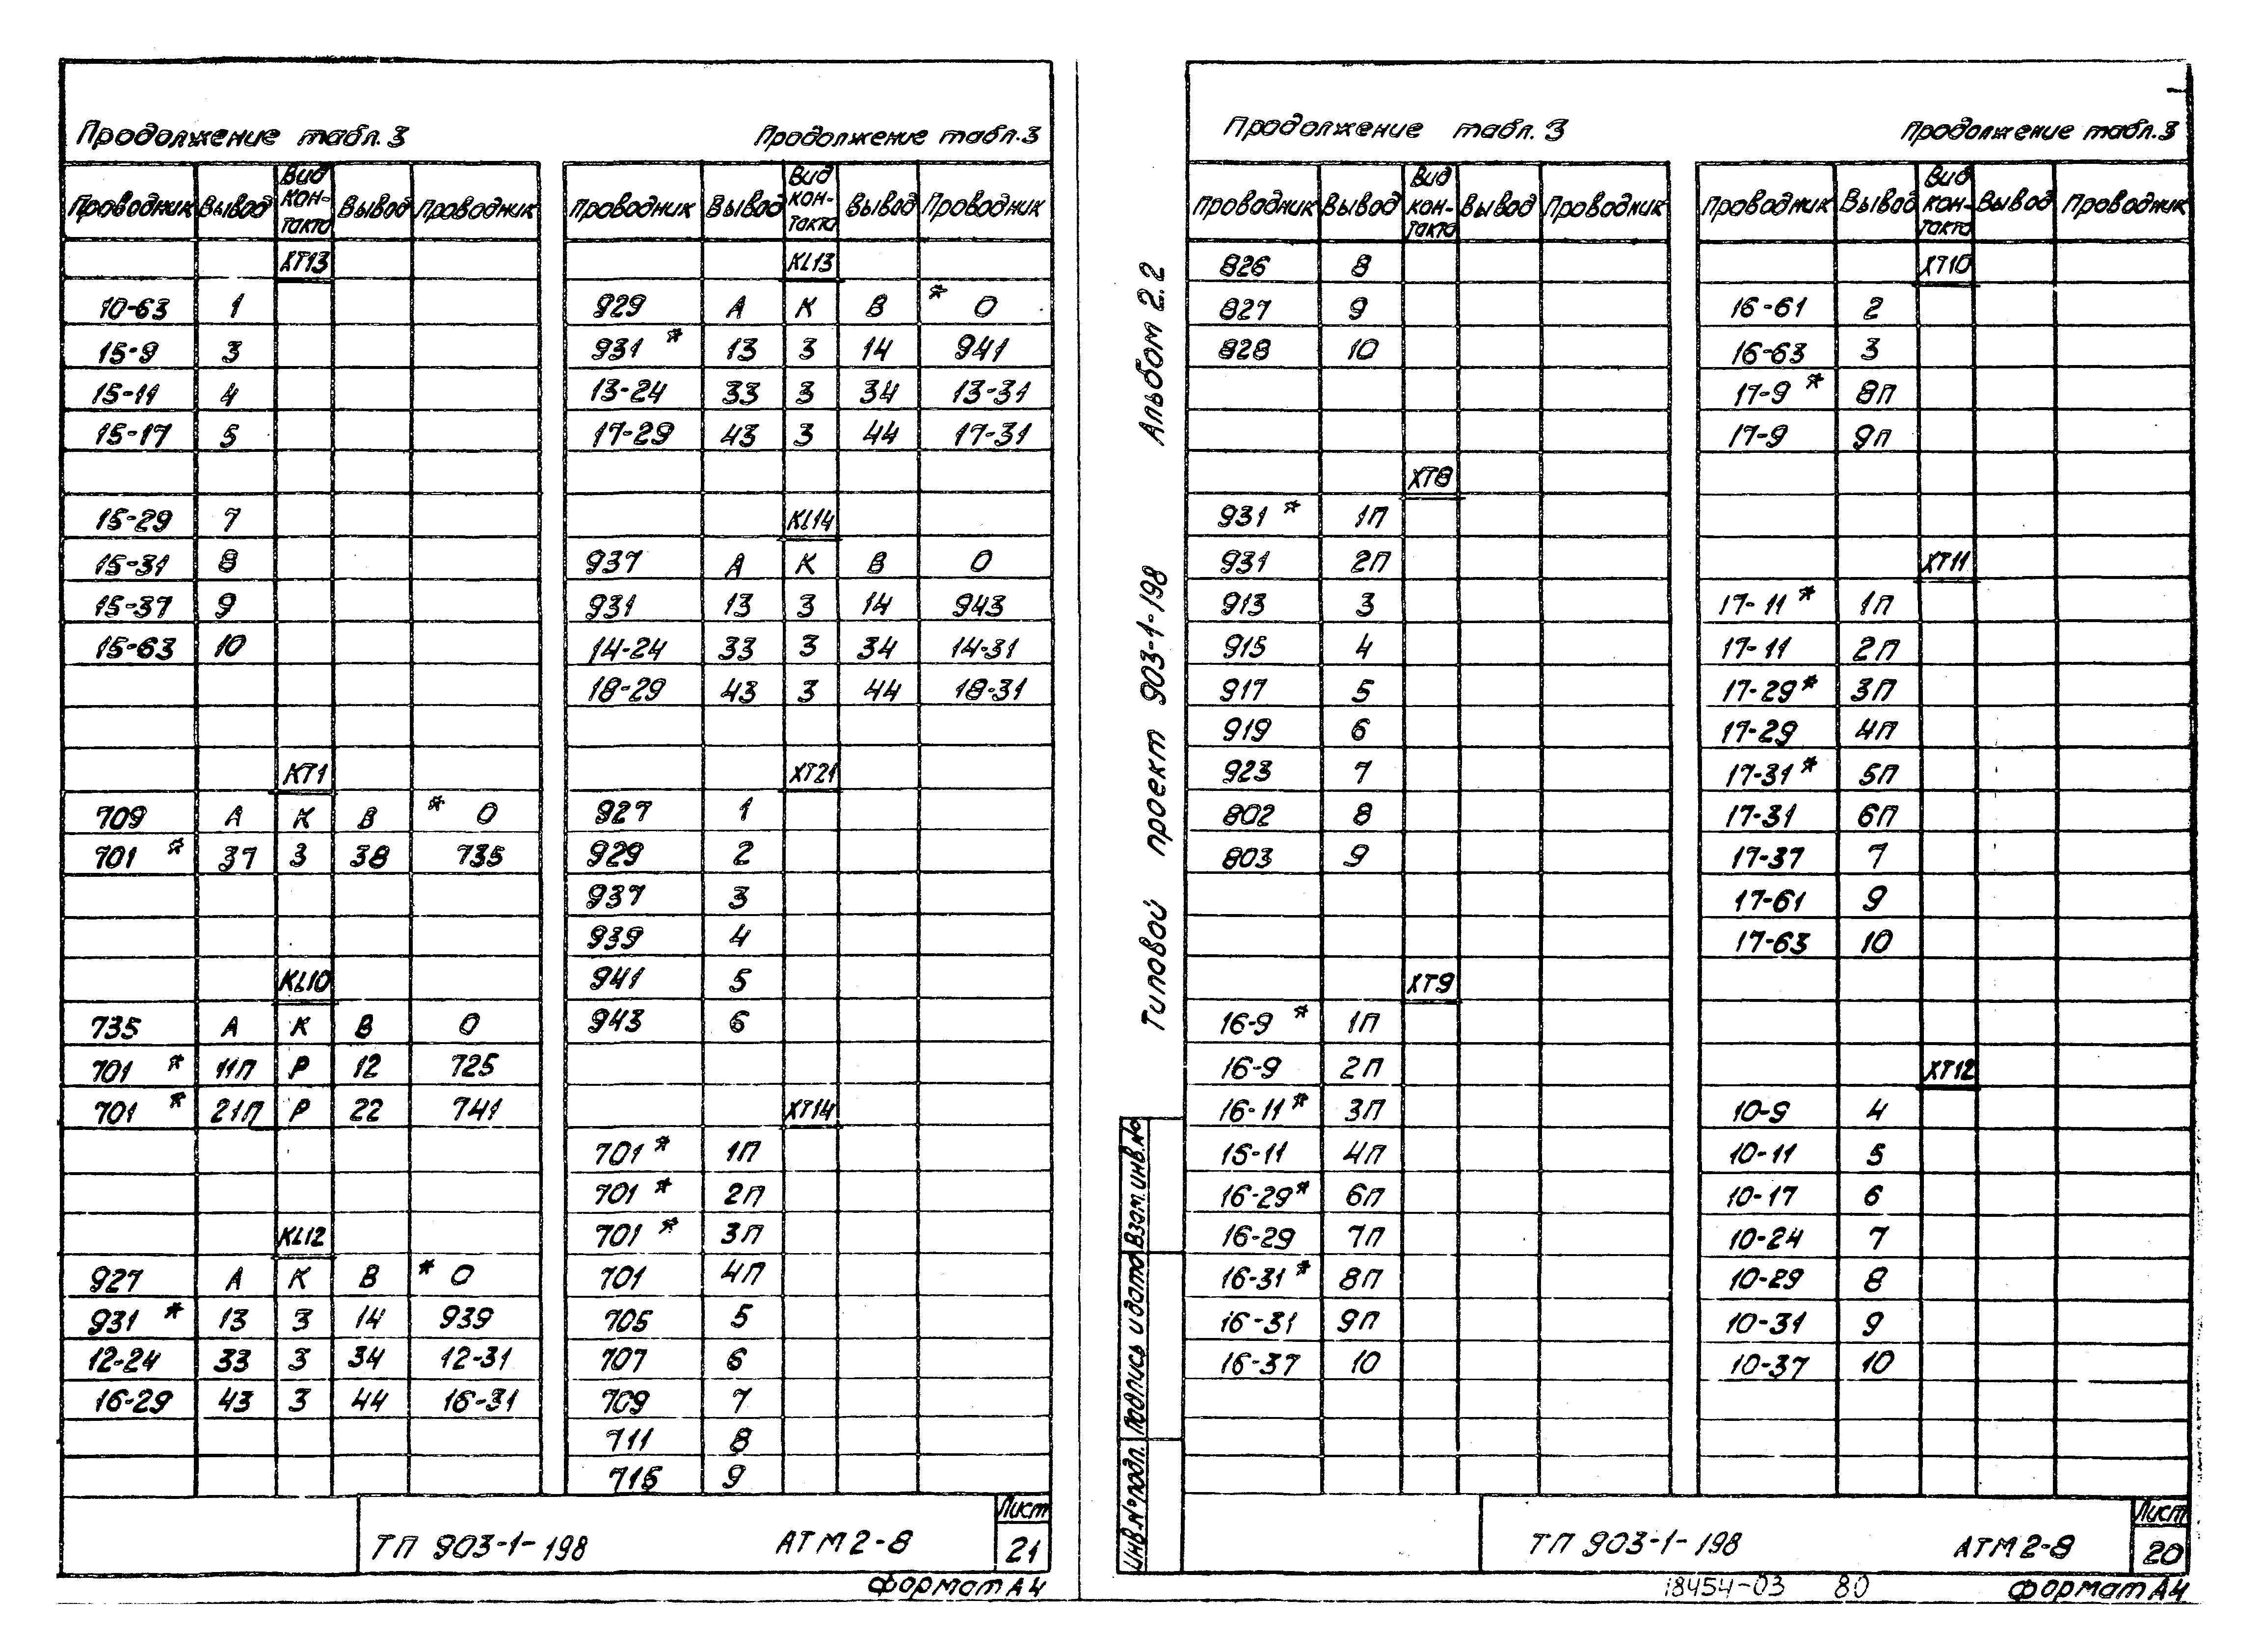 Продолжение табл.3
Проводник Вывод Вид кон-такта Вывод Проводник
XT13
10-63 1
15-9 3
15-11 4
15-17 5
15-29 7
15-31 8
15-37 9
15-63 10
KT1
709 A K B * O
701 * 37 3 38 735
KL10
735 A K B O
701 * 11П P 12 725
701 * 21П P 22 741
KL12
927 A K B * O
931 * 13 3 14 939
12-24 33 3 34 12-31
16-29 43 3 44 16-31
Продолжение табл.3
Проводник Вывод Вид кон-такта Вывод Проводник
KL13
929 A K B * O
931 * 13 3 14 941
13-24 33 3 34 13-31
17-29 43 3 44 17-31
KL14
937 A K B O
931 13 3 14 943
14-24 33 3 34 14-31
18-29 43 3 44 18-31
XT21
927 1
929 2
937 3
939 4
941 5
943 6
XT14
701 * 1П
701 * 2П
701 * 3П
701 4П
705 5
707 6
709 7
711 8
715 9
ТП 903-1-198 АТМ2-8
Лист
21
формат А4
Альбом 2.2
Типовой проект 903-1-198
Взам.инв.№
Подпись и дата
Инв.№ подл.
Продолжение табл.3
Проводник Вывод Вид кон-такта Вывод Проводник
826 8
827 9
828 10
XT8
931 * 1П
931 2П
913 3
915 4
917 5
919 6
923 7
802 8
803 9
XT9
16-9 * 1П
16-9 2П
16-11 * 3П
15-11 4П
16-29 * 6П
16-29 7П
16-31 * 8П
16-31 9П
16-37 10
Продолжение табл.3
Проводник Вывод Вид кон-такта Вывод Проводник
XT10
16-61 2
16-63 3
17-9 * 8П
17-9 9П
XT11
17-11 * 1П
17-11 2П
17-29 * 3П
17-29 4П
17-31 * 5П
17-31 6П
17-37 7
17-61 9
17-63 10
XT12
10-9 4
10-11 5
10-17 6
10-24 7
10-29 8
10-31 9
10-37 10
ТП 903-1-198 АТМ2-8
Лист
20
18454-03 80
формат А4